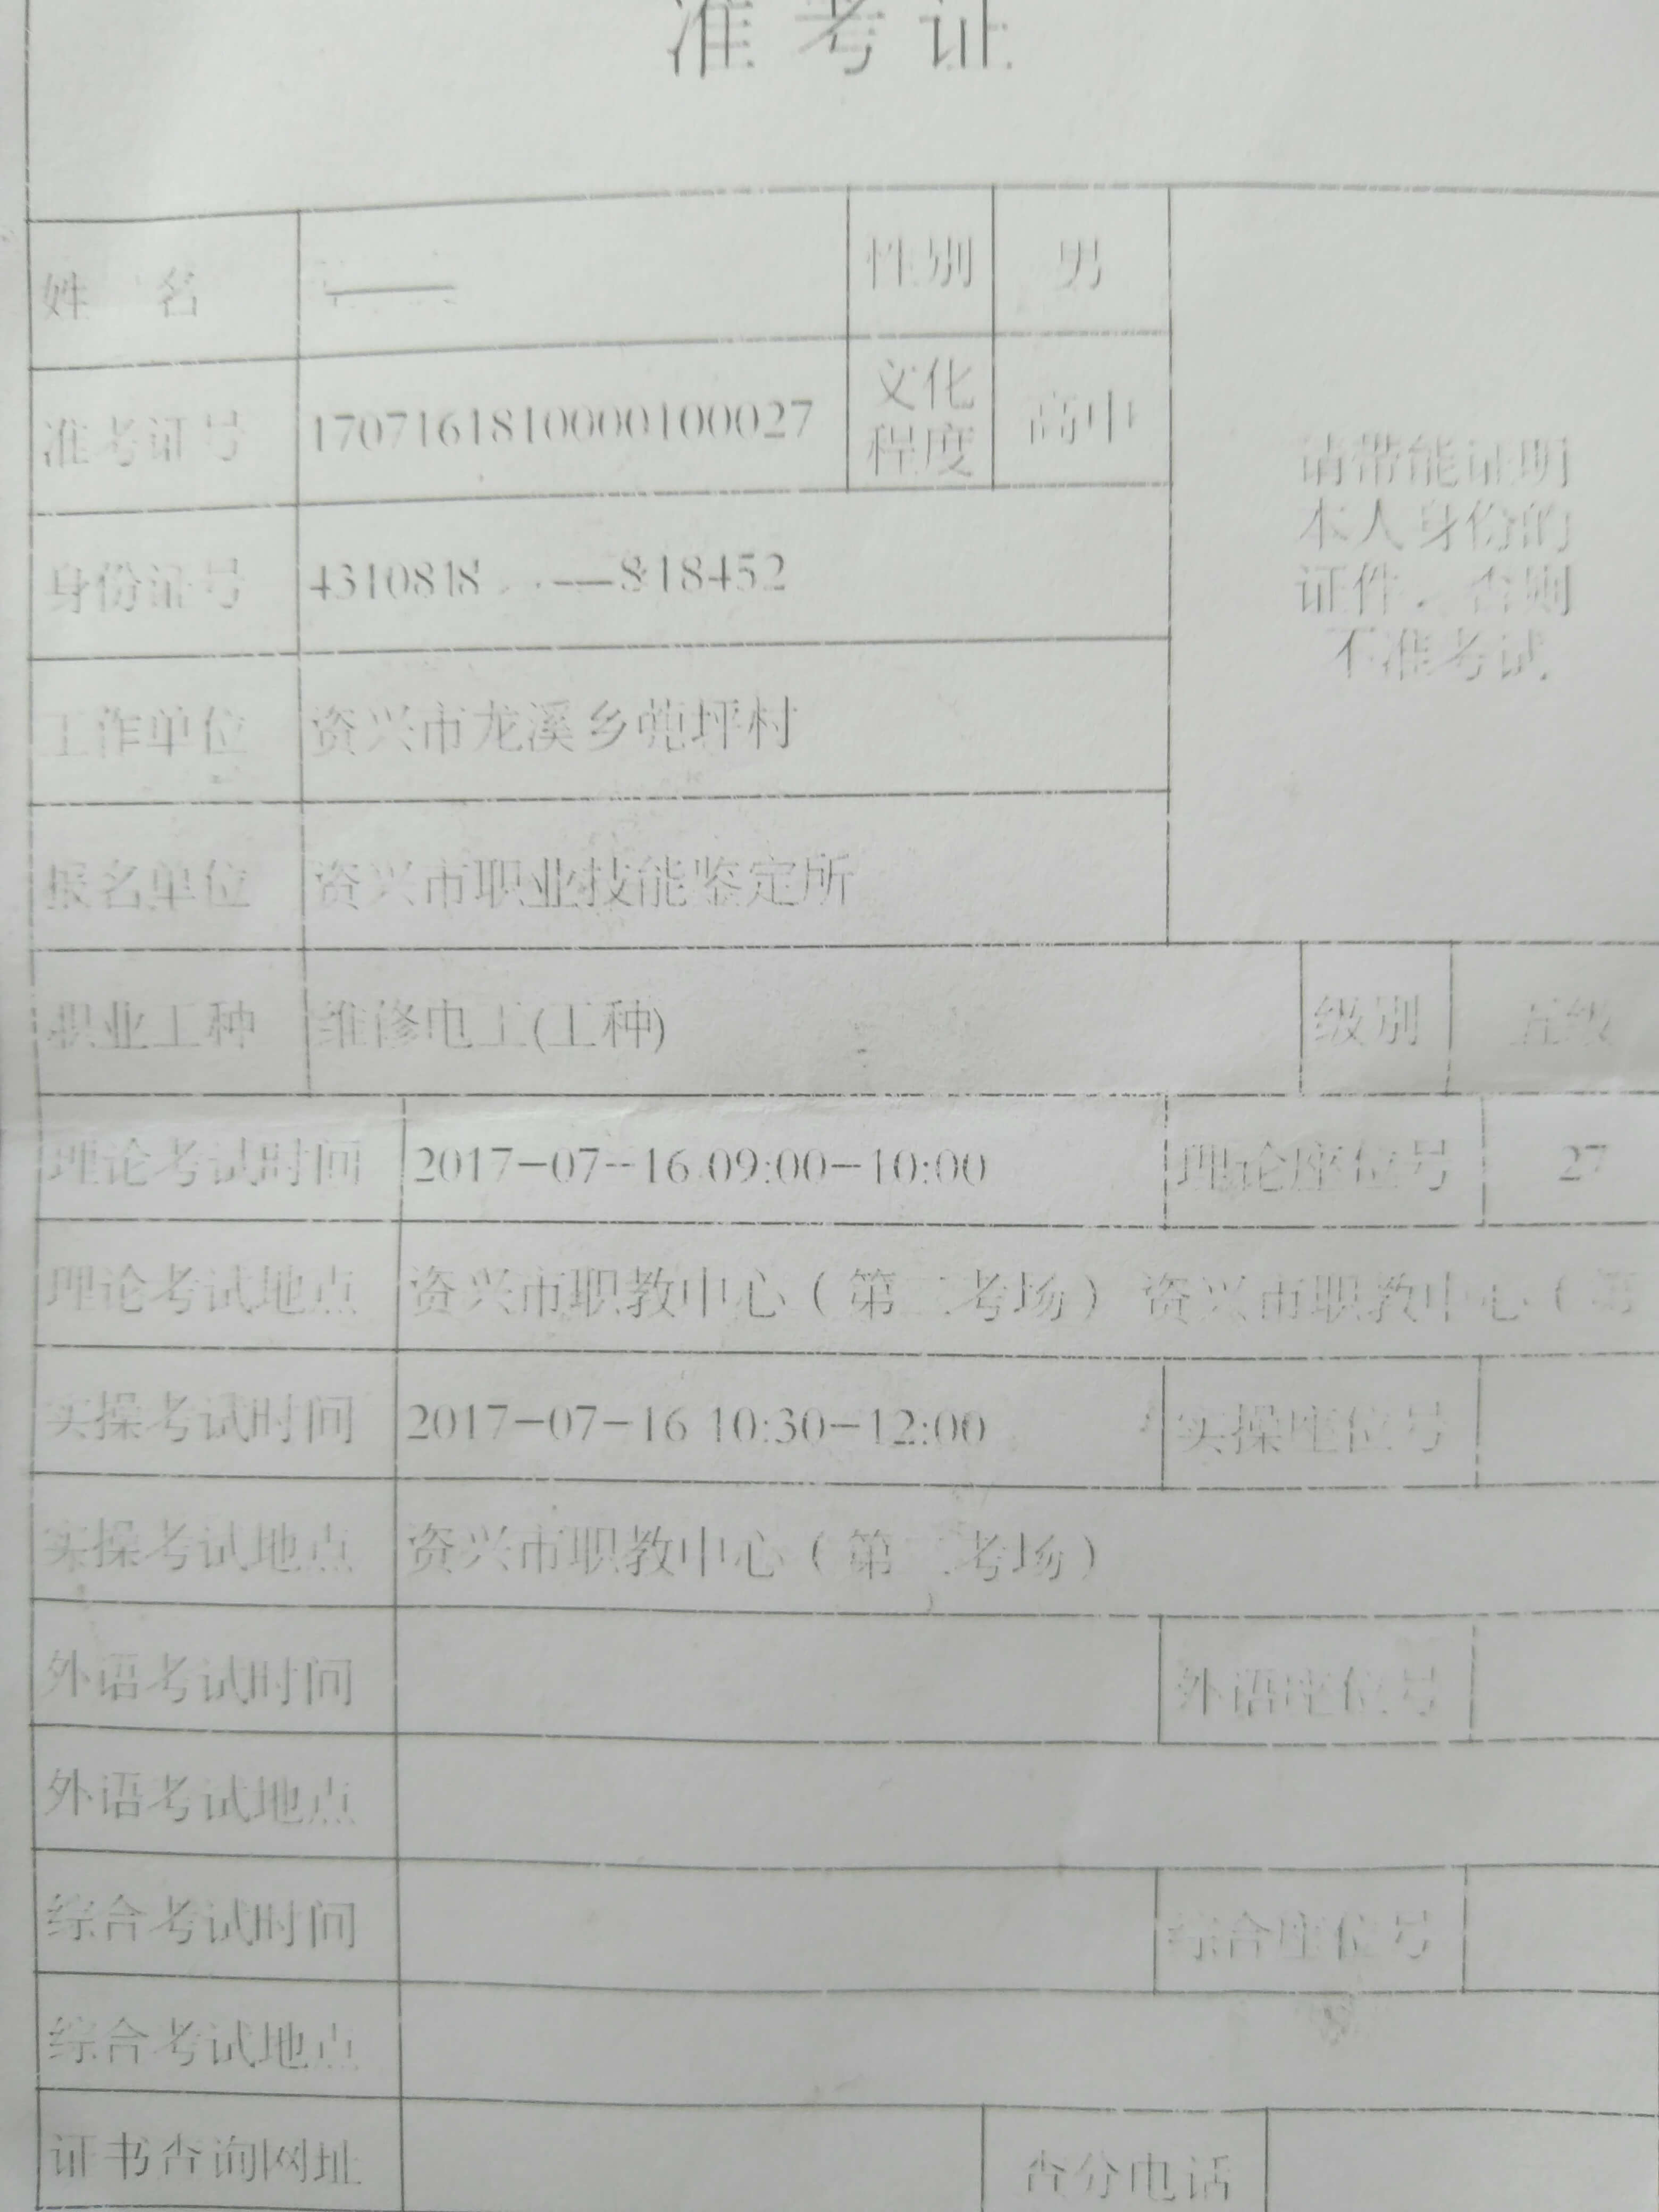 准考证
姓 名
性别 男
准考证号 1707161810000100027 文化程度 高中
身份证号 4310818 818452
请带能证明
本人身份的
证件，否则
不准考试.
工作单位 资兴市龙溪乡苑坪村
报名单位 资兴市职业技能鉴定所
职业工种 维修电工(工种) 级别 五级
理论考试时间 2017-07-16 09:00-10:00 理论座位号 27
理论考试地点 资兴市职教中心（第二考场） 资兴市职教中心（第
实操考试时间 2017-07-16 10:30-12:00 实操座位号
实操考试地点 资兴市职教中心（第二考场）
外语考试时间 外语座位号
外语考试地点
综合考试时间 综合座位号
综合考试地点
证书查询网址 查分电话